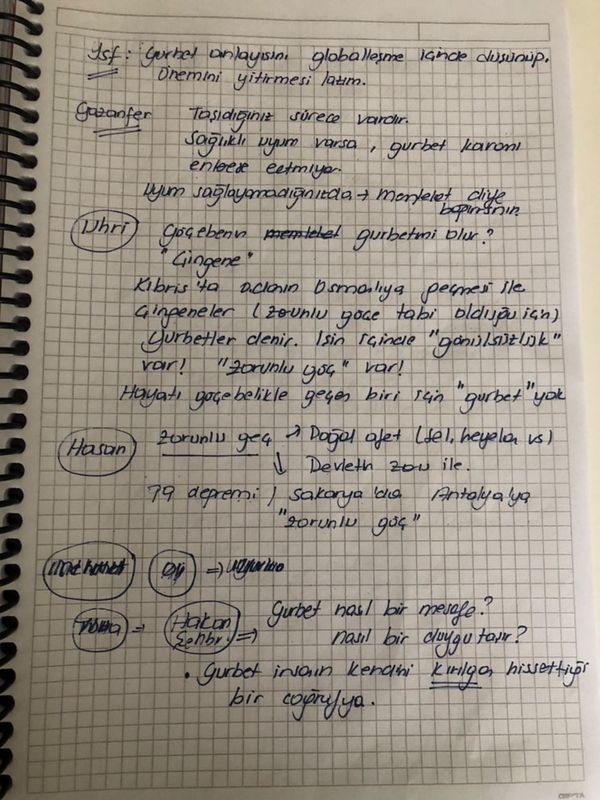 Jsf: Gurbet anlayışını globalleşme içinde düşünüp.
önemini yitirmesi lazım.
Gazanfer Taşıdığınız sürece vardır.
Sağlıklı uyum varsa, gurbet kavramı
enterese etmiyor.
Uyum sağlayamadığınızda → memleket diye
bağırırsınız
Uhri Göçebenin gurbetmi olur?
"Çingene"
Kıbrıs'ta adanın Osmanlıya geçmesi ile
Çingeneler (zorunlu göçe tabi olduğu için)
Gurbetler denir. İşin içinde "gönülsüzlük"
var! "zorunlu göç" var!
Hayatı göçebelikle geçen biri için "gurbet" yok
Hasan zorunlu göç → Doğal afet (sel, heyelan vs)
↓ Devletin zoru ile.
79 depremi / Sakarya'da Antalya'ya
"zorunlu göç"
⇒ Hakan ⇒ Gurbet nasıl bir mesafe?
nasıl bir duygu taşır?
• Gurbet insanın kendini kırılgan hissettiği
bir coğrafya.